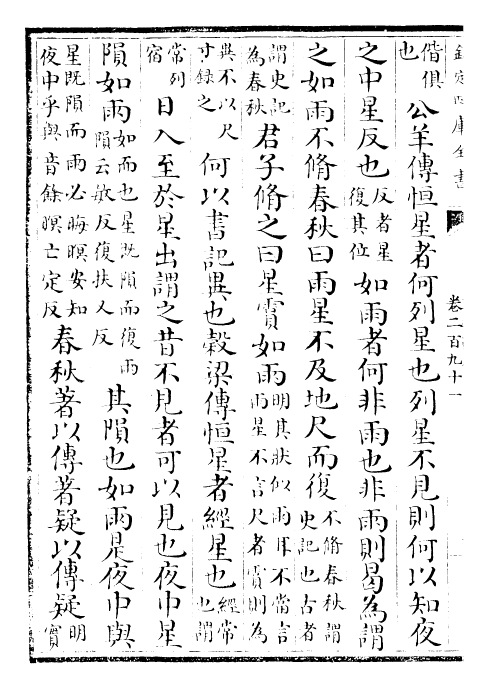 欽定四庫全書
卷二百九十一
偕俱也 公羊傳恒星者何列星也列星不見則何以知夜
之中星反也反者星復其位 如雨者何非雨也非雨則曷為謂
之如雨不脩春秋曰雨星不及地尺而復不脩春秋謂史記也古者
謂史記為春秋 君子脩之曰星霣如雨明其狀似雨耳不當言雨星不言尺者霣則為
異不以尺寸錄之 何以書記異也榖梁傳恒星者經星也經常也謂
常列宿 日入至於星出謂之昔不見者可以見也夜中星
隕如雨如而也星既隕而復雨隕云敏反復扶又反 其隕也如雨是夜中與
星既隕而雨必晦暝安知夜中乎與音餘暝亡定反 春秋著以傳著疑以傳疑明實